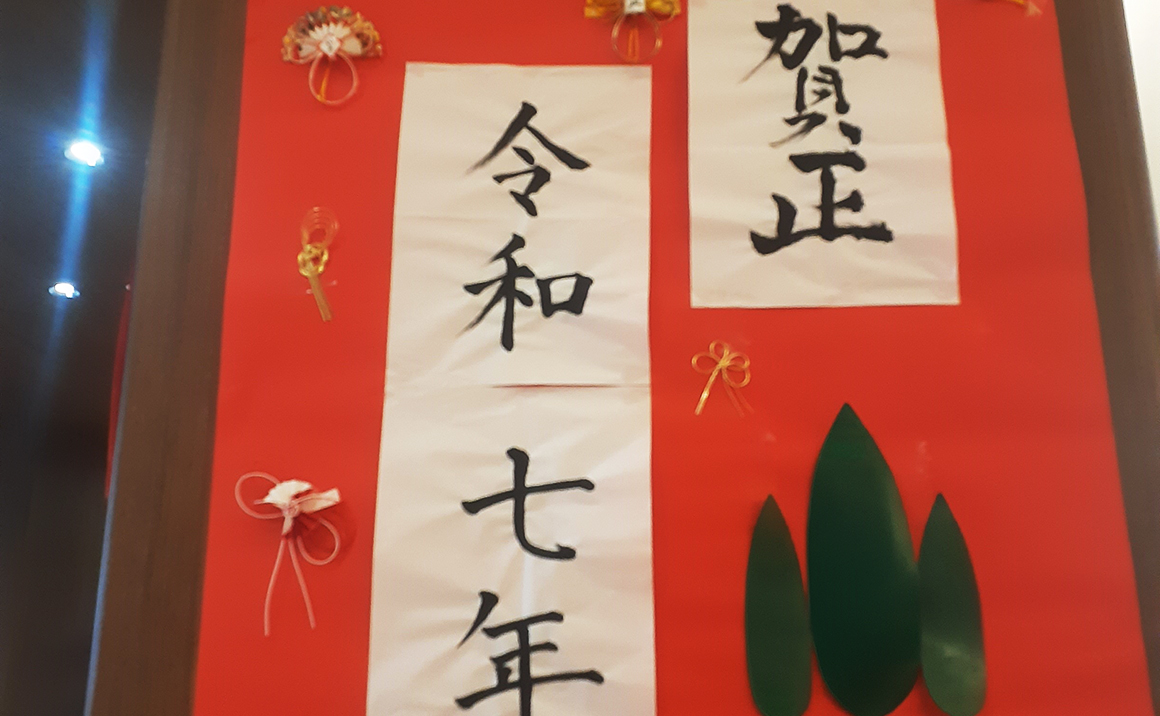 賀正
令和七年